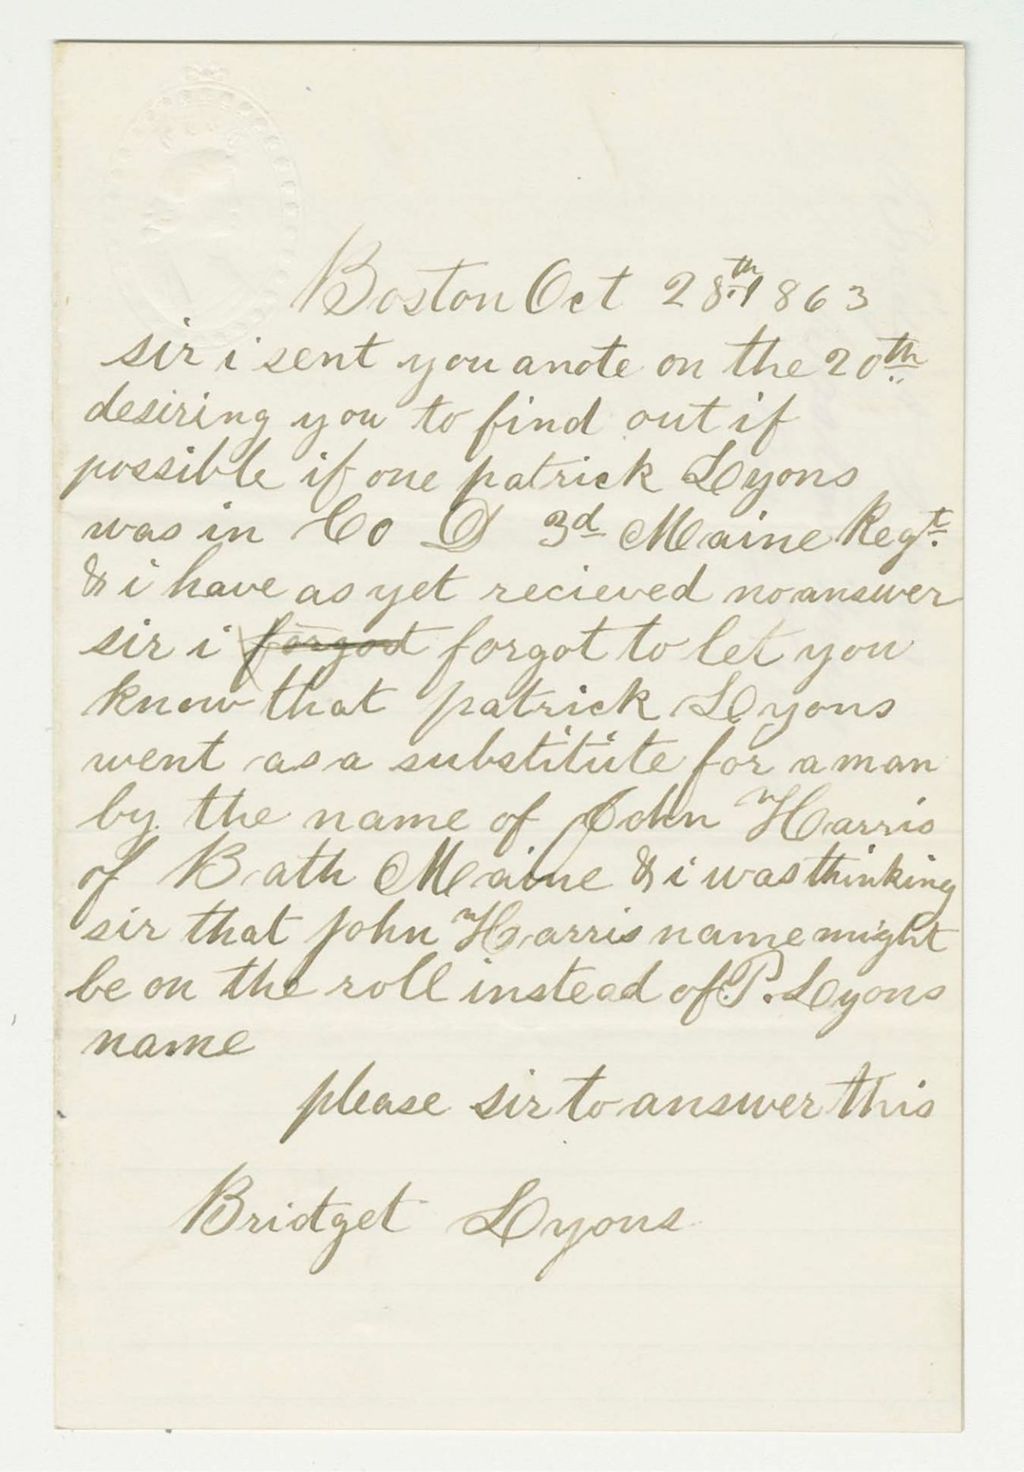 Boston Oct 28th 1863
sir i sent you a note on the 20th
desiring you to find out if
possible if one patrick Lyons
was in Co D 3d Maine Regt.
& i have as yet recieved no answer
sir i forgot forgot to let you
know that patrick Lyons
went as a substitute for a man
by the name of John Harris
of Bath Maine & i was thinking
sir that john Harris name might
be on the roll instead of P. Lyons
name
please sir to answer this
Bridget Lyons